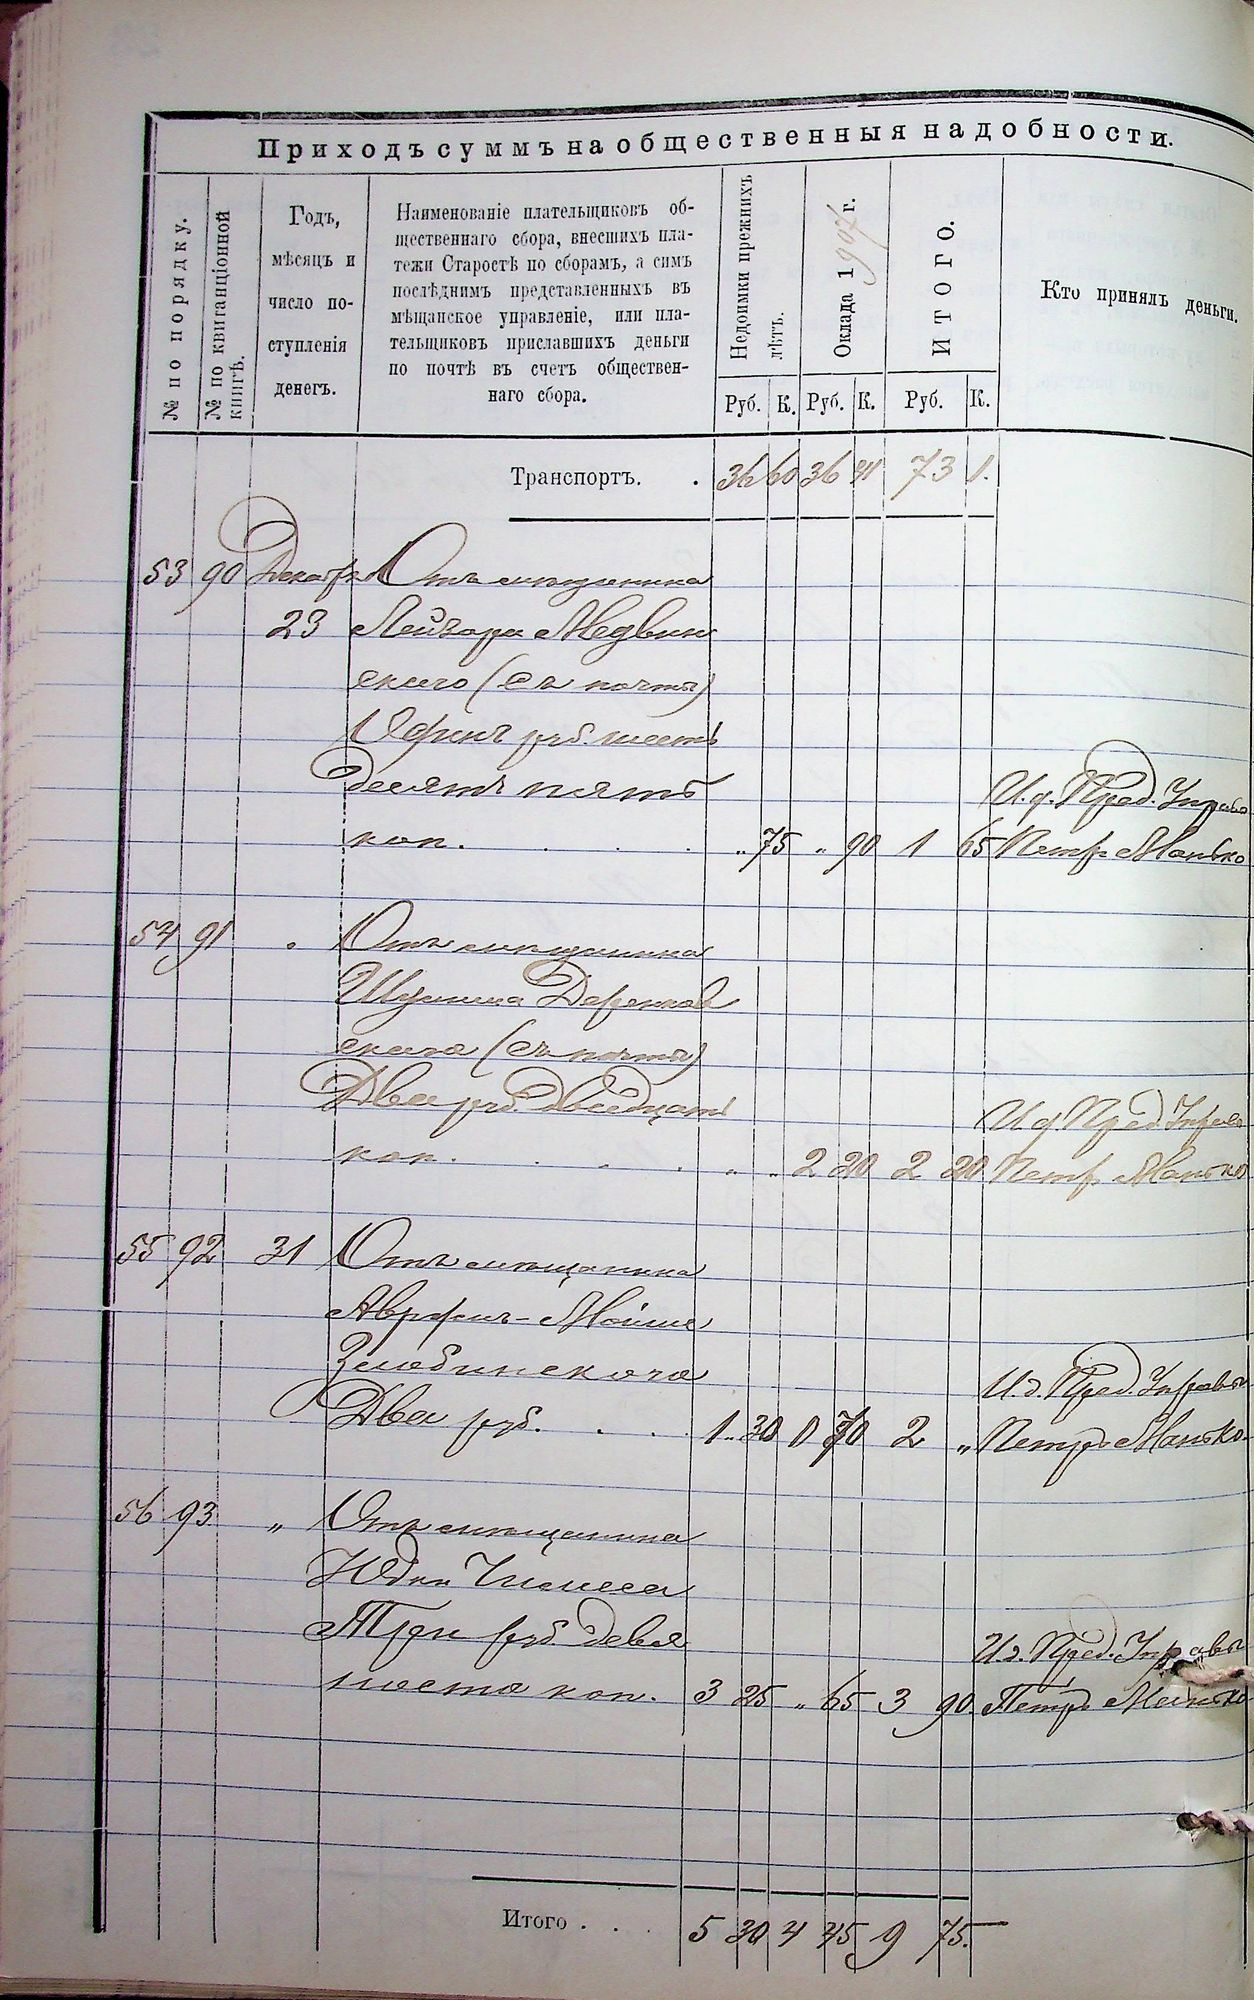 Приходъ суммъ на общественныя надобности.
№ по порядку.
№ по квитанціонной
книгѣ.
Годъ,
мѣсяцъ и
число по-
ступленія
денегъ.
Наименованіе плательщиковъ об-
щественнаго сбора, внесшихъ пла-
тежи Старостѣ по сборамъ, а симъ
послѣднимъ представленныхъ въ
мѣщанское управленіе, или пла-
тельщиковъ приславшихъ деньги
по почтѣ въ счетъ обществен-
наго сбора.
Недоимки прежнихъ
лѣтъ.
Оклада 1907 г.
ИТОГО.
Кто принялъ деньги.
Руб. К. Руб. К. Руб. К.
Транспортъ. . 36 60 36 41 73 1.
53 90 Декабря Отъ мѣщанина
23 Лейзора Медвин
скаго (съ почты)
Одинъ руб. шесть
десятъ пять И. д. Пред. Управы
коп. . . . " 75 " 90 1 65 Петръ Манько
54 91 " Отъ мѣщанина
скаго (съ почты)
Два руб. двадцать И д Пред Управы
коп. . . . " " 2 20 2 20 Петръ Манько
55 92 31 Отъ мѣщанина
Мойше
Злобинскаго И. д. Пред. Управы
Два руб. . . . 1 30 " 70 2 " Петръ Манько.
56 93 " Отъ мѣщанина
Юдки
Три руб девя И. д. Пред. Управы
носто коп. 3 25 " 65 3 90. Петръ Манько
Итого . . . 5 30 4 45 9 75.